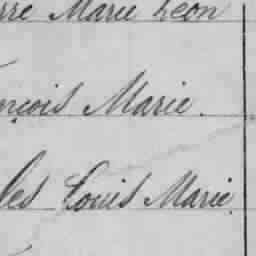 rre Marie Léon
nçois Marie.
les Louis Marie